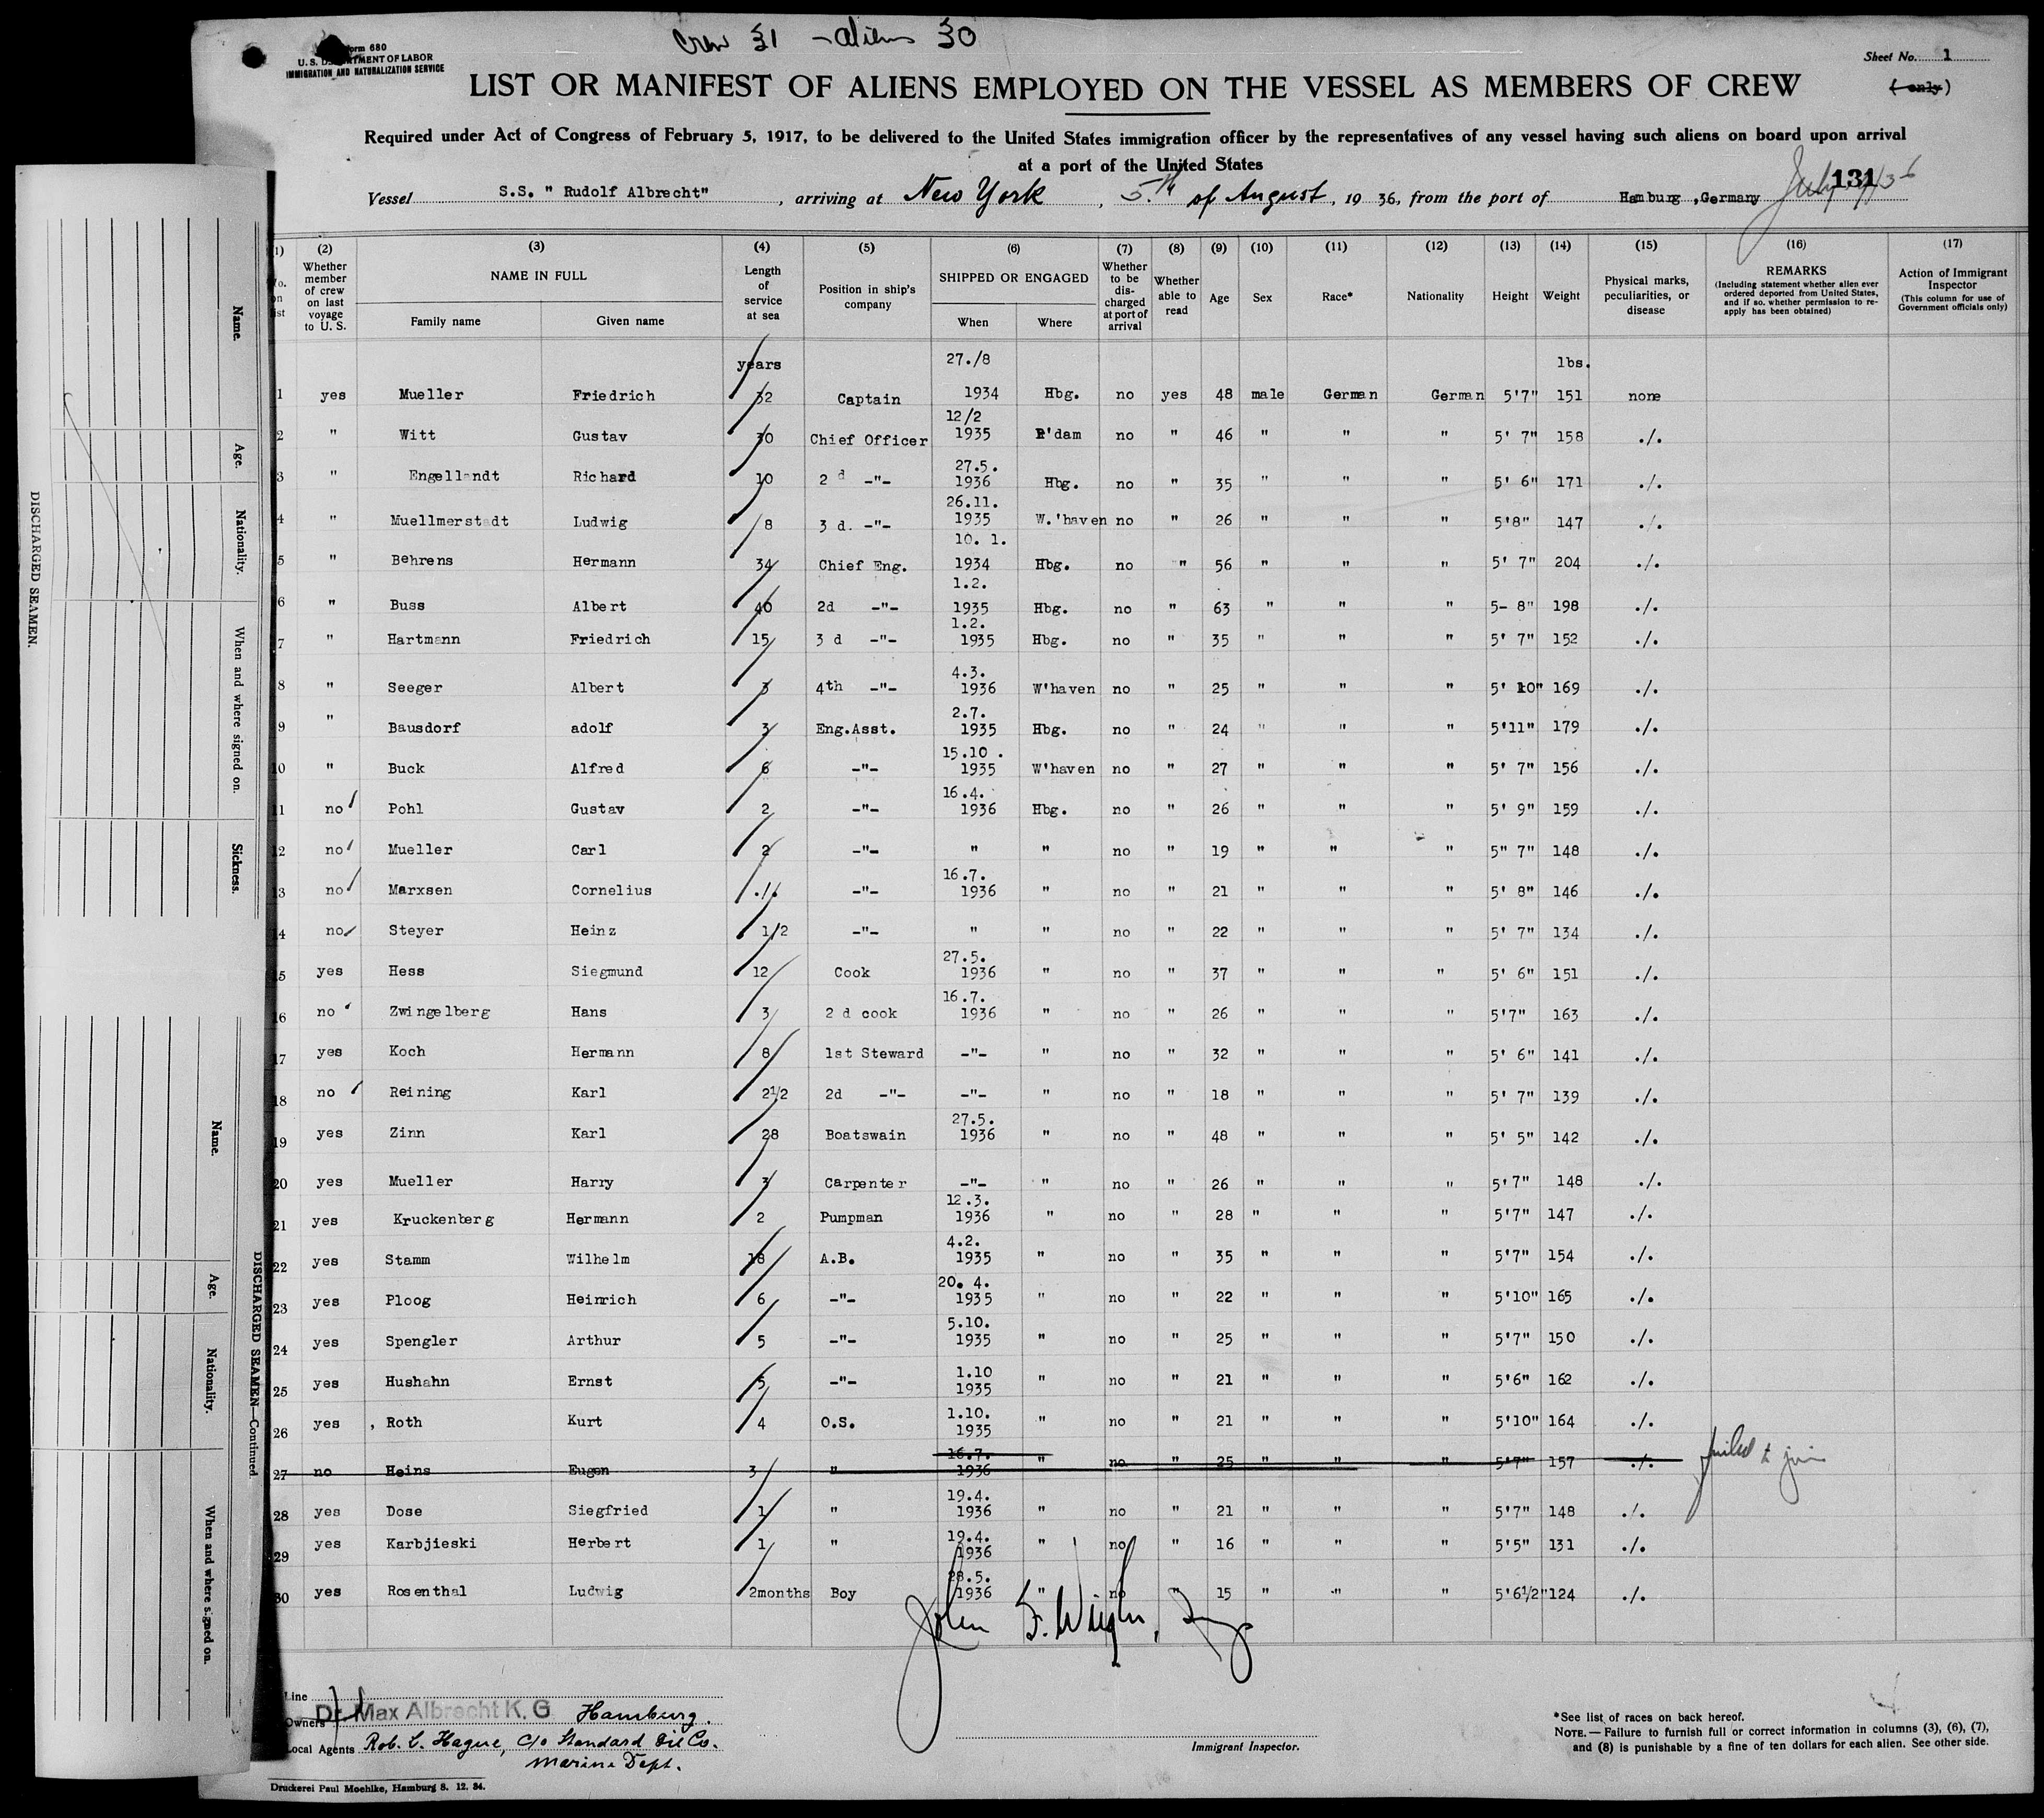 Crew 31 - aliens 30
Form 680
U. S. DEPARTMENT OF LABOR
IMMIGRATION AND NATURALIZATION SERVICE
Sheet No. 1
(only)
LIST OR MANIFEST OF ALIENS EMPLOYED ON THE VESSEL AS MEMBERS OF CREW
Required under Act of Congress of February 5, 1917, to be delivered to the United States immigration officer by the representatives of any vessel having such aliens on board upon arrival
at a port of the United States
131
Vessel S.S. " Rudolf Albrecht" , arriving at New York , 5.th of August , 19 36, from the port of Hamburg ,Germany July
(1) (2) (3) (4) (5) (6) (7) (8) (9) (10) (11) (12) (13) (14) (15) (16) (17)
No. on list
Whether member of crew on last voyage to U. S.
NAME IN FULL
Family name Given name
Length of service at sea
Position in ship's company
SHIPPED OR ENGAGED
When Where
Whether to be discharged at port of arrival
Whether able to read
Age Sex Race* Nationality Height Weight
Physical marks, peculiarities, or disease
REMARKS
(Including statement whether alien ever ordered deported from United States, and if so, whether permission to reapply has been obtained)
Action of Immigrant Inspector
(This column for use of Government officials only)
years 27./8 lbs.
1 yes Mueller Friedrich 32 Captain 1934 Hbg. no yes 48 male German German 5'7" 151 none
12/2
2 " Witt Gustav 30 Chief Officer 1935 R'dam no " 46 " " " 5' 7" 158 ./.
27.5.
3 " Engellandt Richard 10 2 d -"- 1936 Hbg. no " 35 " " " 5' 6" 171 ./.
26.11.
4 " Muellmerstadt Ludwig 8 3 d. -"- 1935 W.'haven no " 26 " " " 5'8" 147 ./.
10. 1.
5 " Behrens Hermann 34 Chief Eng. 1934 Hbg. no " 56 " " " 5' 7" 204 ./.
1.2.
6 " Buss Albert 40 2d -"- 1935 Hbg. no " 63 " " " 5- 8" 198 ./.
1.2.
7 " Hartmann Friedrich 15 3 d -"- 1935 Hbg. no " 35 " " " 5' 7" 152 ./.
4.3.
8 " Seeger Albert 3 4th -"- 1936 W'haven no " 25 " " " 5' 10" 169 ./.
2.7.
9 " Bausdorf adolf 3 Eng.Asst. 1935 Hbg. no " 24 " " " 5'11" 179 ./.
15.10 .
10 " Buck Alfred 6 -"- 1935 W'haven no " 27 " " " 5' 7" 156 ./.
16.4.
11 no Pohl Gustav 2 -"- 1936 Hbg. no " 26 " " " 5' 9" 159 ./.
12 no Mueller Carl 2 -"- " " no " 19 " " " 5" 7" 148 ./.
16.7.
13 no Marxsen Cornelius ./. -"- 1936 " no " 21 " " " 5' 8" 146 ./.
14 no Steyer Heinz 1/2 -"- " " no " 22 " " " 5' 7" 134 ./.
27.5.
15 yes Hess Siegmund 12 Cook 1936 " no " 37 " " " 5' 6" 151 ./.
16.7.
16 no Zwingelberg Hans 3 2 d cook 1936 " no " 26 " " " 5'7" 163 ./.
17 yes Koch Hermann 8 1st Steward -"- " no " 32 " " " 5' 6" 141 ./.
18 no Reining Karl 2 1/2 2d -"- -"- " no " 18 " " " 5' 7" 139 ./.
27.5.
19 yes Zinn Karl 28 Boatswain 1936 " no " 48 " " " 5' 5" 142 ./.
20 yes Mueller Harry 3 Carpenter -"- " no " 26 " " " 5'7" 148 ./.
12.3.
21 yes Kruckenberg Hermann 2 Pumpman 1936 " no " 28 " " " 5'7" 147 ./.
4.2.
22 yes Stamm Wilhelm 18 A.B. 1935 " no " 35 " " " 5'7" 154 ./.
20. 4.
23 yes Ploog Heinrich 6 -"- 1935 " no " 22 " " " 5'10" 165 ./.
5.10.
24 yes Spengler Arthur 5 -"- 1935 " no " 25 " " " 5'7" 150 ./.
1.10
25 yes Hushahn Ernst 5 -"- 1935 " no " 21 " " " 5'6" 162 ./.
1.10.
26 yes , Roth Kurt 4 O.S. 1935 " no " 21 " " " 5'10" 164 ./.
16.7.
27 no Heins Eugen 3 " 1936 " no " 25 " " " 5'7" 157 ./. failed to join
19.4.
28 yes Dose Siegfried 1 " 1936 " no " 21 " " " 5'7" 148 ./.
19.4.
29 yes Karbjieski Herbert 1 " 1936 " no " 16 " " " 5'5" 131 ./.
28.5.
30 yes Rosenthal Ludwig 2months Boy 1936 " no " 15 " " " 5'6 1/2" 124 ./.
Line
Owners Dr. Max Albrecht K. G Hamburg.
Local Agents Rob. L. Hague, c/o Standard Oil Co.
Marine Dept.
Immigrant Inspector.
*See list of races on back hereof.
NOTE.—Failure to furnish full or correct information in columns (3), (6), (7),
and (8) is punishable by a fine of ten dollars for each alien. See other side.
Druckerei Paul Moehlke, Hamburg 8. 12. 34.
DISCHARGED SEAMEN.
Name.
Age.
Nationality.
When and where signed on.
Sickness.
DISCHARGED SEAMEN—Continued
Name.
Age.
Nationality.
When and where signed on.